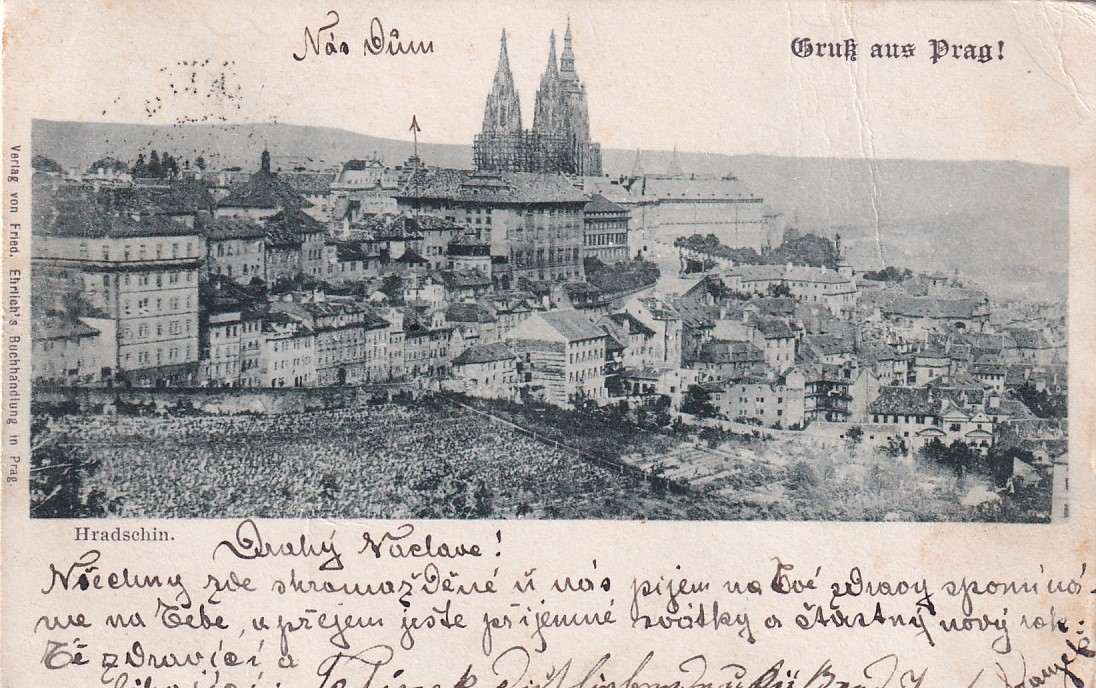 Náš Dům
Gruß aus Prag!
Verlag von Fried. Ehrlich's Buchhandlung in Prag.
Hradschin.
Drahý Václave!
Všechny zde shromážděné u nás pijem na Tvé zdravy spomíná-
me na Tebe, a přejem ješte příjemné svátky a šťastný nový rok.
Tě zdravící a